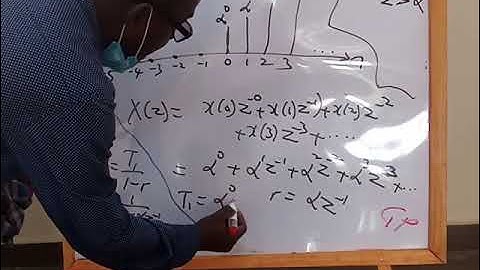 z > α
α⁰ α¹
-5 -4 -3 -2 -1 0 1 2 3 ...... n
X(z) = x(0)z⁻⁰ + x(1)z⁻¹ + x(2)z⁻²
+ x(3)z⁻³ + ....
= T₁/(1-r) = α⁰ + α¹z⁻¹ + α²z⁻² + α³z⁻³ + ...
T₁ = α⁰ r = αz⁻¹